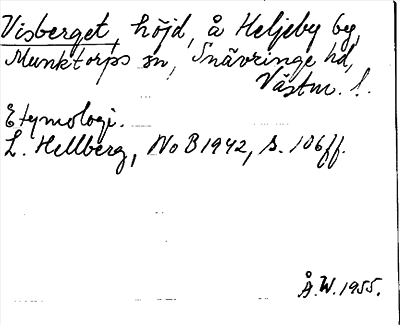 Visberget, höjd, å Heljeby by,
Munktorps sn, Snävringe hd,
Västm. l.
Etymologi.
L. Hellberg, NoB 1942, s. 106 ff.
Å.W. 1955.